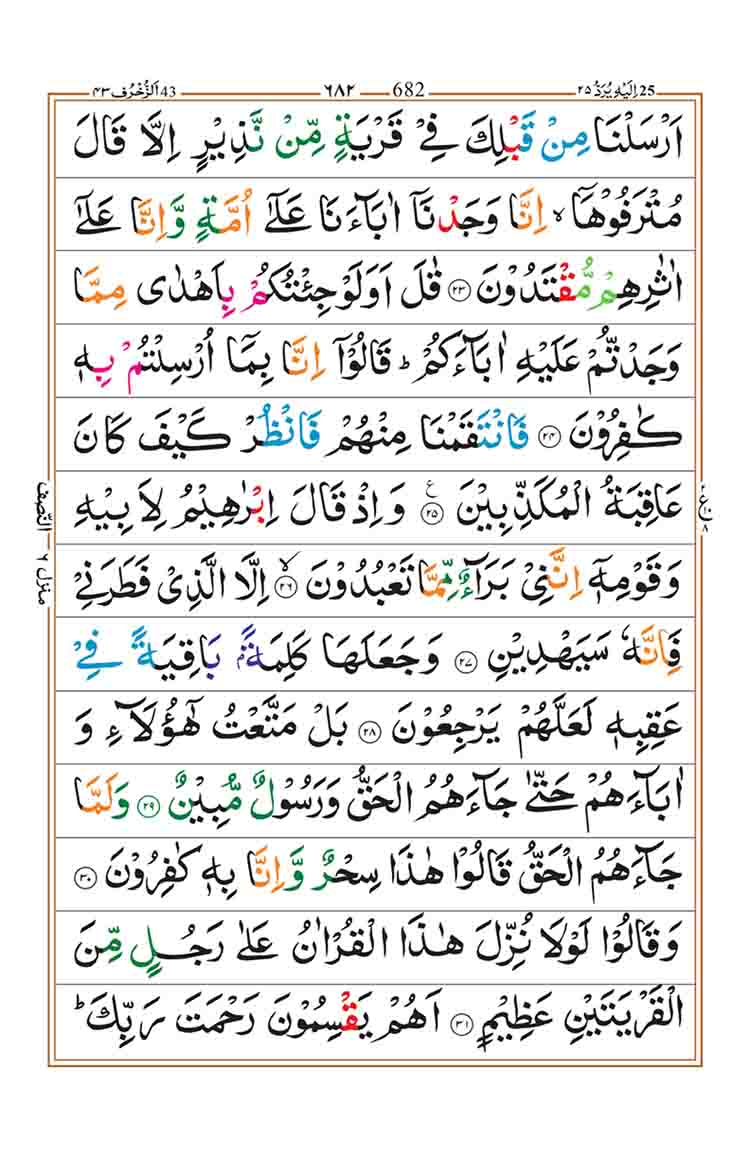 اَلزُّخْرُف ٤٣ 43 ٦٨٢ 682 اِلَيْهِ يُرَدُّ ٢٥ 25
اَرْسَلْنَا مِنْ قَبْلِكَ فِیْ قَرْیَةٍ مِّنْ نَّذِیْرٍ اِلَّا قَالَ
مُتْرَفُوْهَاۤ ۙ اِنَّا وَجَدْنَاۤ اٰبَآءَنَا عَلٰۤی اُمَّةٍ وَّ اِنَّا عَلٰۤی
اٰثٰرِهِمْ مُّقْتَدُوْنَ ۟۲۳ قٰلَ اَوَلَوْ جِئْتُكُمْ بِاَهْدٰی مِمَّا
وَجَدْتُّمْ عَلَیْهِ اٰبَآءَكُمْ ؕ قَالُوْۤا اِنَّا بِمَاۤ اُرْسِلْتُمْ بِهٖ
كٰفِرُوْنَ ۟۲۴ فَانْتَقَمْنَا مِنْهُمْ فَانْظُرْ كَیْفَ كَانَ
عَاقِبَةُ الْمُكَذِّبِیْنَ ۟۲۵ ع وَ اِذْ قَالَ اِبْرٰهِیْمُ لِاَبِیْهِ
وَ قَوْمِهٖۤ اِنَّنِیْ بَرَآءٌ مِّمَّا تَعْبُدُوْنَ ۟ۙ۲۶ اِلَّا الَّذِیْ فَطَرَنِیْ
فَاِنَّهٗ سَیَهْدِیْنِ ۟۲۷ وَ جَعَلَهَا كَلِمَةًۢ بَاقِیَةً فِیْ
عَقِبِهٖ لَعَلَّهُمْ یَرْجِعُوْنَ ۟۲۸ بَلْ مَتَّعْتُ هٰۤؤُلَآءِ وَ
اٰبَآءَهُمْ حَتّٰی جَآءَهُمُ الْحَقُّ وَ رَسُوْلٌ مُّبِیْنٌ ۟۲۹ وَ لَمَّا
جَآءَهُمُ الْحَقُّ قَالُوْا هٰذَا سِحْرٌ وَّ اِنَّا بِهٖ كٰفِرُوْنَ ۟۳۰
وَ قَالُوْا لَوْلَا نُزِّلَ هٰذَا الْقُرْاٰنُ عَلٰی رَجُلٍ مِّنَ
الْقَرْیَتَیْنِ عَظِیْمٍ ۟۳۱ اَهُمْ یَقْسِمُوْنَ رَحْمَتَ رَبِّكَ ؕ
النّصف
منزل ٦